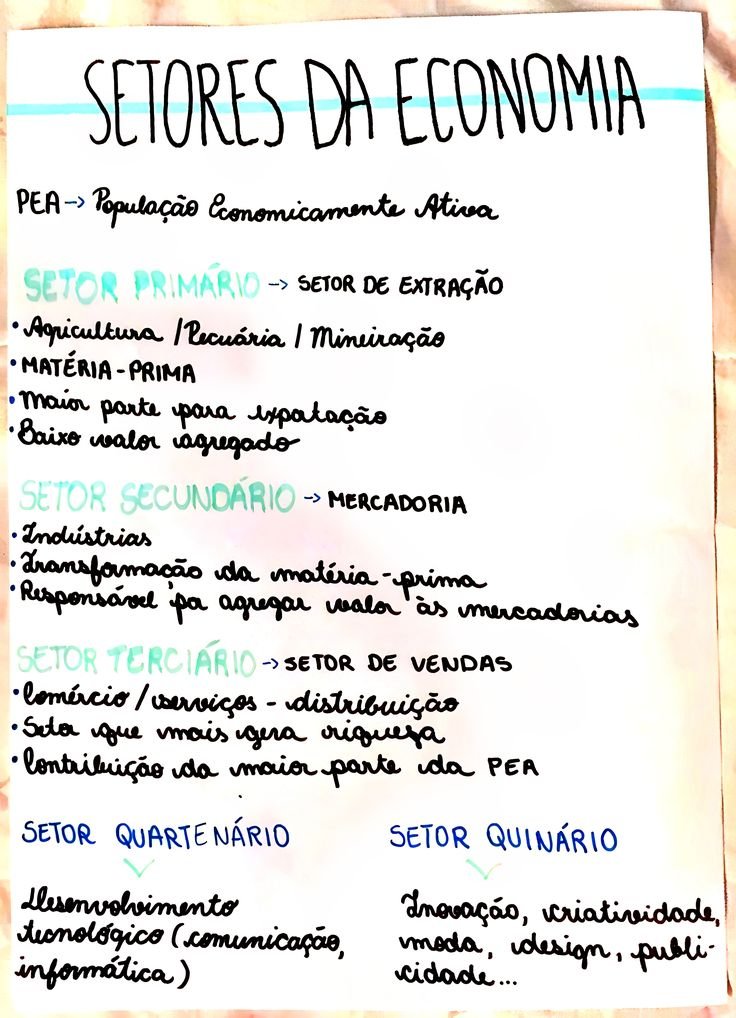 SETORES DA ECONOMIA
PEA -> População Economicamente Ativa
SETOR PRIMÁRIO -> SETOR DE EXTRAÇÃO
• Agricultura / Pecuária / Mineiração
• MATÉRIA-PRIMA
• Maior parte para expotação
• Baixo valor agregado
SETOR SECUNDÁRIO -> MERCADORIA
• Indústrias
• Transformação da matéria-prima
• Responsável pa agregar valor às mercadorias
SETOR TERCIÁRIO -> SETOR DE VENDAS
• Comércio / serviços - distribuição
• Setor que mais gera riqueza
• Contribuição da maior parte da PEA
SETOR QUARTENÁRIO
Desenvolvimento
tecnológico (comunicação,
informática)
SETOR QUINÁRIO
Inovação, criatividade,
moda, design, publi-
cidade...